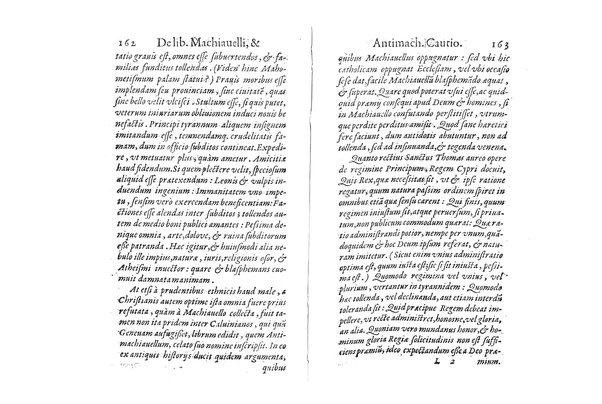 162 De lib. Machiauelli, &
tatio grauis est, omnes esse subuertendos, & fa-
milias funditus tollendas. (Viden' hinc Maho-
metismum palam statui?) Prauis moribus esse
implendam seu prouinciam, siue ciuitatē, quas
sine bello velit vlcisci. Stultum esse, si quis putet,
veterum iniuriarum obliuionem induci nouis be
nefactis. Principi tyrannum aliquem insignem
imitandum esse, tenendamq́. crudelitatis fa-
mam, dum in officio subditos contineat. Expedi-
re, vt metuatur plus, quàm ametur. Amicitiæ
haud fidendum. Si quem plectere velit, speciosum
aliquid esse prætexendum: Leonis & vulpis in-
duendum ingenium: Immanitatem vno impe-
tu, sensim verò exercendam beneficentiam: Fa-
ctiones esse alendas inter subditos; tollendos au-
tem de medio boni publici amantes: Pessima de-
nique omnia, arte, dolove, & ruina subditorum
esse patranda. Hæc igitur, & huiusmodi alia ne-
bulo ille impius, natura, iuris, religionis osor, &
Atheismi inuector: quare & blasphemans euo-
muit damnatam animam.
At etsi à prudentibus ethnicis haud male, a
Christianis autem optime ista omnia fuere prius
refutata, quàm à Machiauello collecta, fuit ta-
men non ita pridem inter Caluinianos, qui quū
Geneuam aufugisset, librum edidit, quem Anti-
machiauellum, celato suo nomine inscripsit. In eo
ex antiquis historijs ducit quidem argumenta,
quibus
Antimach. Cautio. 163
quibus Machiauellus oppugnatur: sed vbi hic
catholicam oppugnat Ecclesiam, vel vbi occasio
sese dat, facile Machiauelli blasphemādo æquat,
& superat. Quare quod poterat vsui esse, ac quid-
quid præmij consequi apud Deum & homines, si
in Machiauello confutando perstitisset, vtrum-
que perdite perditus amisit. Quod sane hæretici
fere faciunt, dum antidotis abutuntur, non ad
tollenda, sed ad insinuanda, & tegenda venena.
Quanto rectius Sanctus Thomas aureo opere
de regimine Principum, Regem Cypri docuit,
Quis Rex, quæ necessitas sit, vt & ipse ratione
regatur, quum natura passim ordinem spiret in
omnibus etiā quæ sensu carent: Qui finis, quum
regimen iniustum sit, atque peruersum, si priua-
tum, non publicum commodum quærat: Quæ ra-
tio administrandi potior, nempe per vnum, quā-
doquidem & hoc Deum ipsum referat, & natu-
ram imitetur. (Sicut enim vnius administratio
optima est, quum iusta est, sic si sit iniusta, pessi-
ma est.) Quomodo regimina vel vnius, vel
plurium, vertantur in tyrannidem: Quomodo
hæc tollenda, vel declinanda, aut etiam interdū
toleranda sit: Quid præcipue Regem debeat im-
pellere, vt recte administret, honoṡne, vel gloria,
an alia. Quoniam vero mundanus honor, & ho-
minum gloria Regiæ solicitudinis non est suffi-
ciens præmiū, ideo expectandum esse a Deo præ-
L 2 mium.